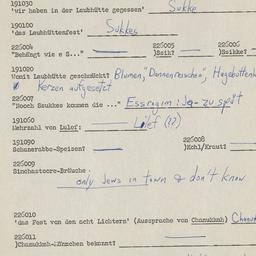 191030
'wir haben in der Laubhütte gegessen' Sukke
190100
'das Laubhüttenfest' Sukkes
225004 225005 225006
"Behängt wie e S..." )Seik? )Seikke?
191020
Womit Laubhütte geschmückt? Blumen,
Kerzen aufgesetzt
225007
"Nooch Sukkes kommen die ..." Essrogim: Ja - zu spät
191060
Mehrzahl von Lulef: Lulef (??)
191090 225008
Schamerabbe-Speisen? )Kohl/Kraut?
225009
Simchastoore-Bräuche
only Jews in town & don't know
225010
'das Fest von den acht Lichtern' (Aussprache von Chanukkah)
225011
)Chanukkah-Männchen bekannt?